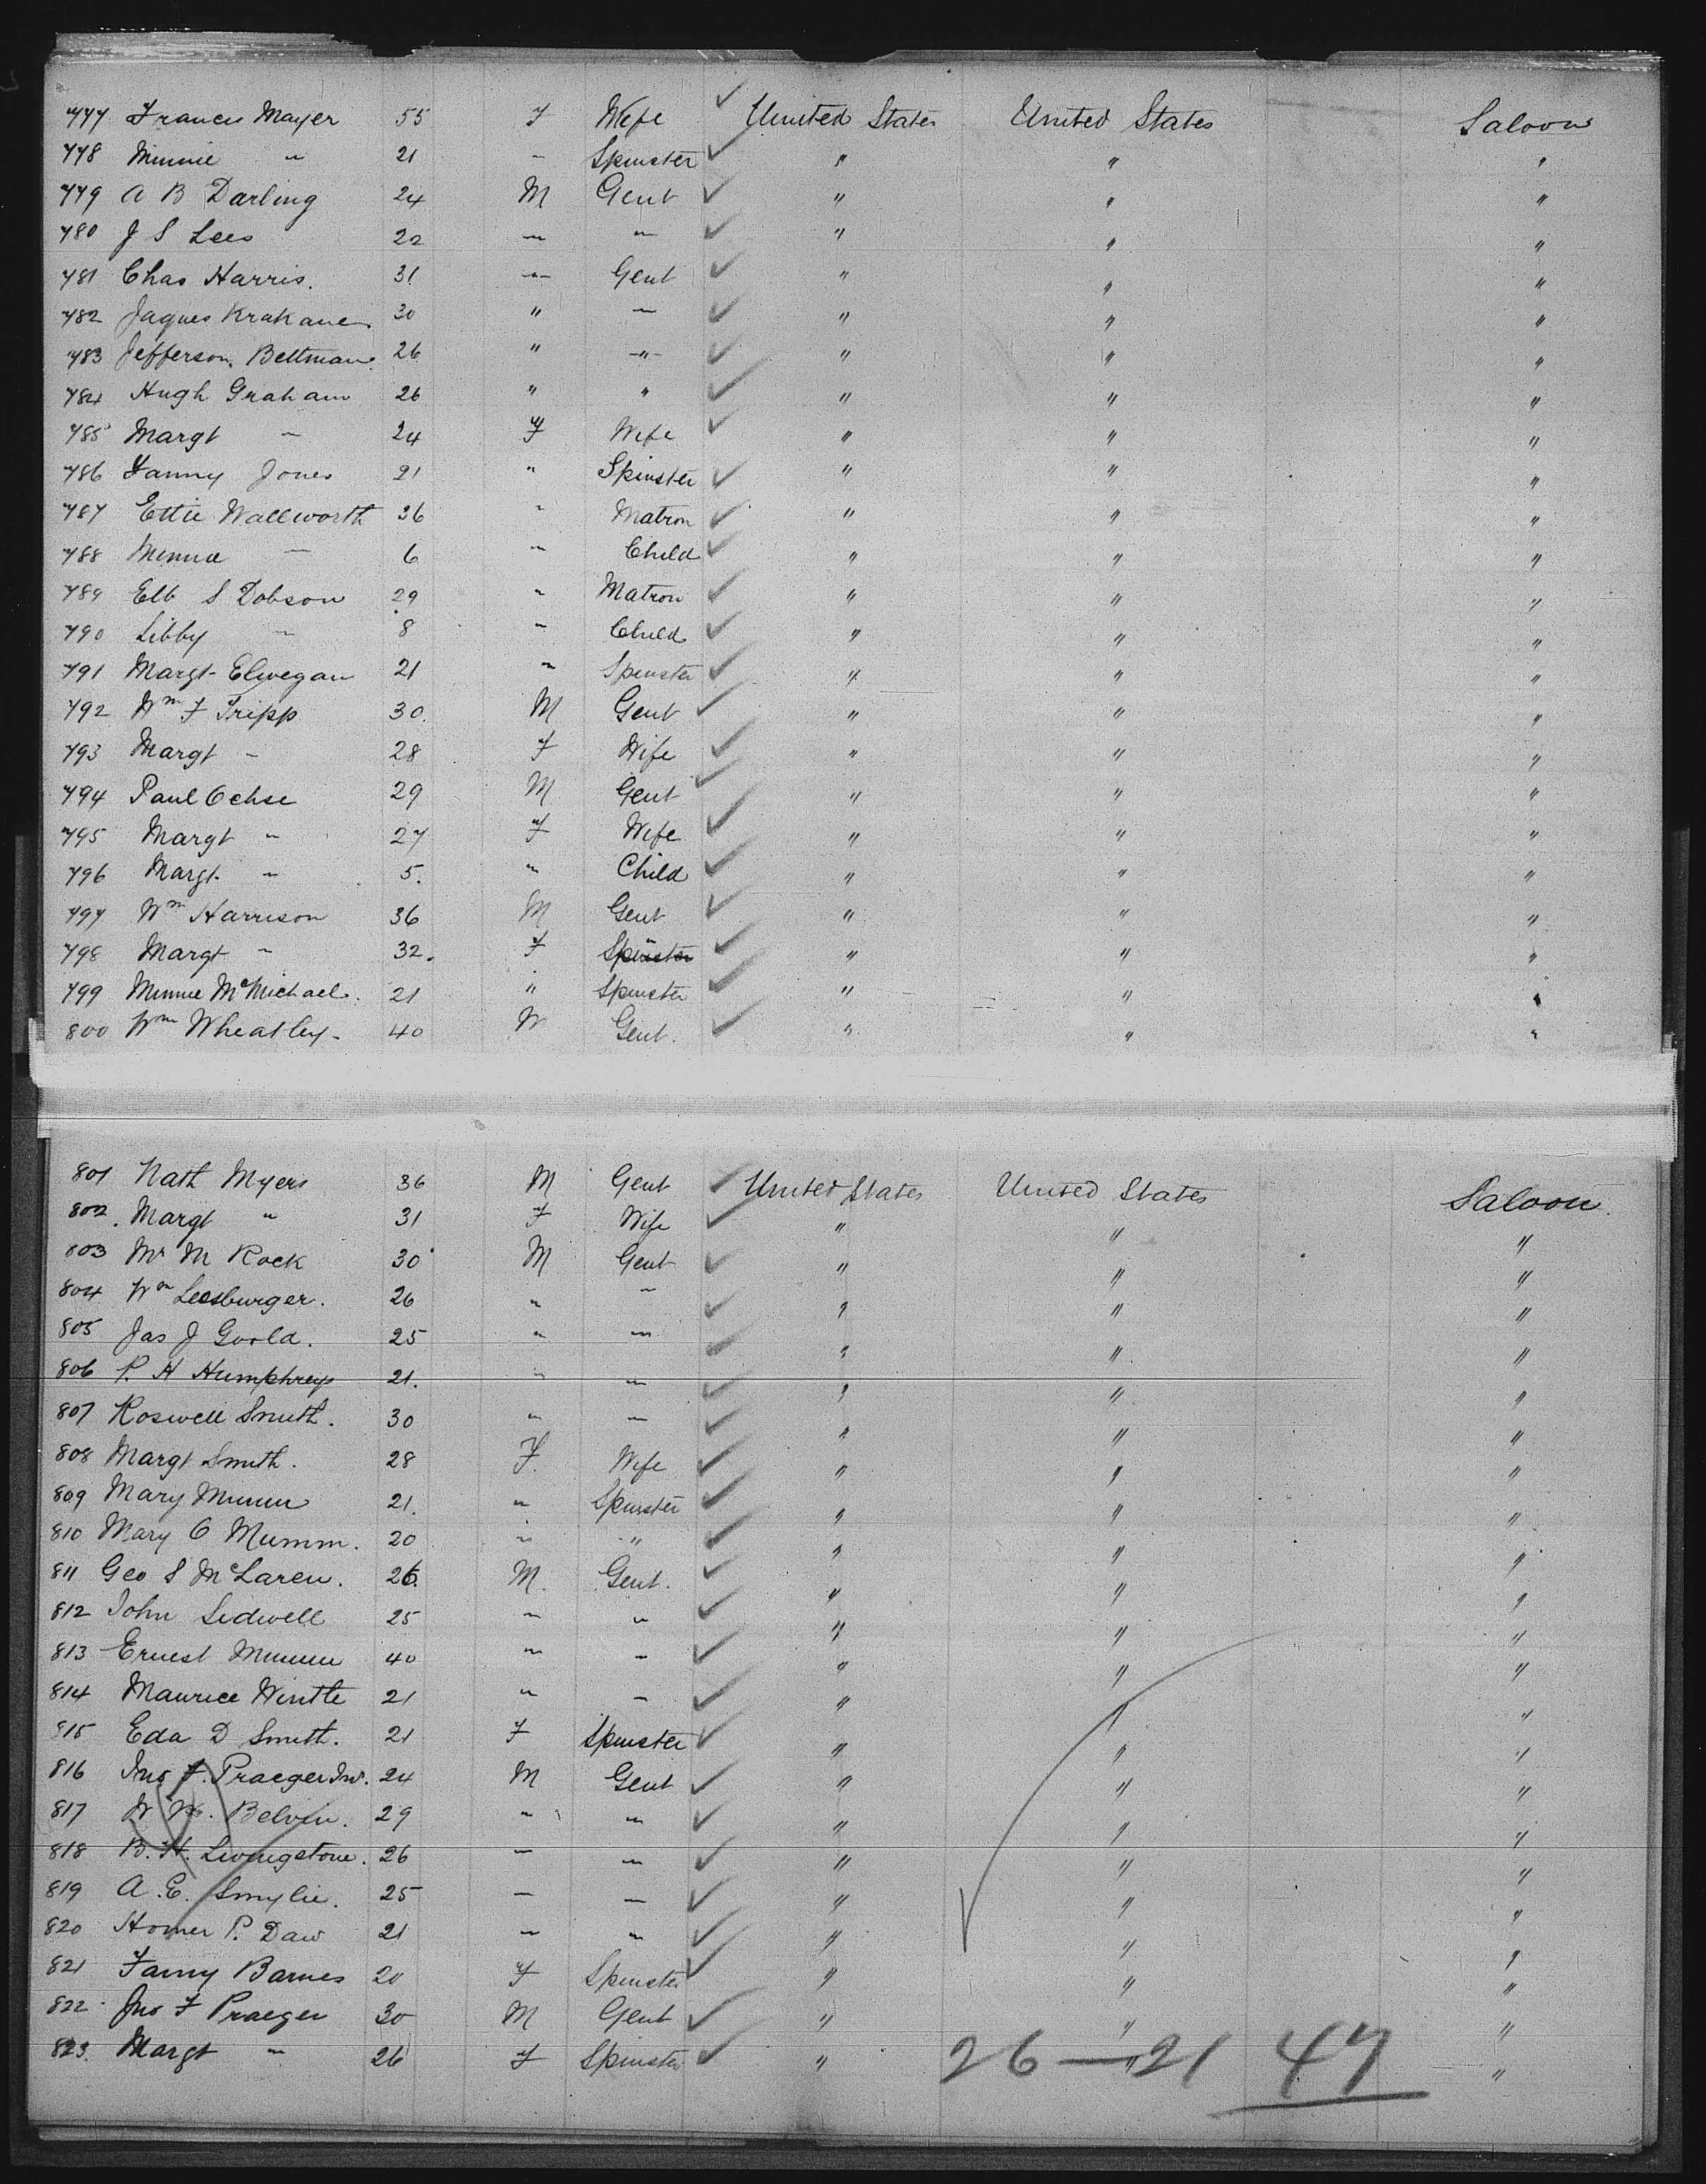 777 Frances Mayer 55 F Wife ✓ United States United States Saloon
778 Minnie " 21 " Spinster ✓ " " "
779 A B Darling 24 M Gent ✓ " " "
780 J S Lees 22 " " ✓ " " "
781 Chas Harris. 31 " Gent ✓ " " "
782 Jaques Krakauer 30 " " ✓ " " "
783 Jefferson. Bettman. 26 " " ✓ " " "
784 Hugh Graham 26 " " ✓ " " "
785 Margt " 24 F Wife ✓ " " "
786 Fanny Jones 21 " Spinster ✓ " " "
787 Ettie Wallworth 36 " Matron ✓ " " "
788 Minnie " 6 " Child ✓ " " "
789 Elb S Dobson 29 " Matron ✓ " " "
790 Libby " 8 " Child ✓ " " "
791 Margt 21 " Spinster ✓ " " "
792 Wm F Tripp 30. M Gent ✓ " " "
793 Margt " 28 F Wife ✓ " " "
794 Paul Ochse 29 M Gent ✓ " " "
795 Margt " 27 F Wife ✓ " " "
796 Margt " 5. " Child ✓ " " "
797 Wm Harrison 36 M Gent ✓ " " "
798 Margt " 32. F Spinster ✓ " " "
799 Minnie McMichael. 21 " Spinster ✓ " " "
800 Wm Wheatley. 40 M Gent. ✓ " " "
801 Nath Myers 36 M Gent ✓ United States United States Saloon.
802. Margt " 31 F Wife ✓ " " "
803 Mr M Rock 30 M Gent ✓ " " "
804 Wm Leesburger. 26 " " ✓ " " "
805 Jas J Goold. 25 " " ✓ " " "
806 P. H Humphreys 21. " " ✓ " " "
807 Roswell Smith. 30 " " ✓ " " "
808 Margt Smith. 28 F. Wife ✓ " " "
809 Mary Mumm 21. " Spinster ✓ " " "
810 Mary O Mumm. 20 " " ✓ " " "
811 Geo S McLaren. 26. M. Gent. ✓ " " "
812 John Sidwell 25 " " ✓ " " "
813 Ernest Mumm 40 " " ✓ " " "
814 Maurice Wintle 21 " " ✓ " " "
815 Eda D Smith. 21 F Spinster ✓ " " "
816 Jno F. Praeger Jnr. 24 M Gent ✓ " " "
817 W Belvin. 29 " " ✓ " " "
818 B. H. Livingstone. 26 " " ✓ " " "
819 A. E. Smylie. 25 " " ✓ " " "
820 Homer P. Daw 21 " " ✓ " " "
821 Fanny Barnes 20 F Spinster ✓ " " "
822 Jno F Praeger 30 M Gent ✓ " " "
823. Margt " 26 F Spinster ✓ " " "
26—21 47